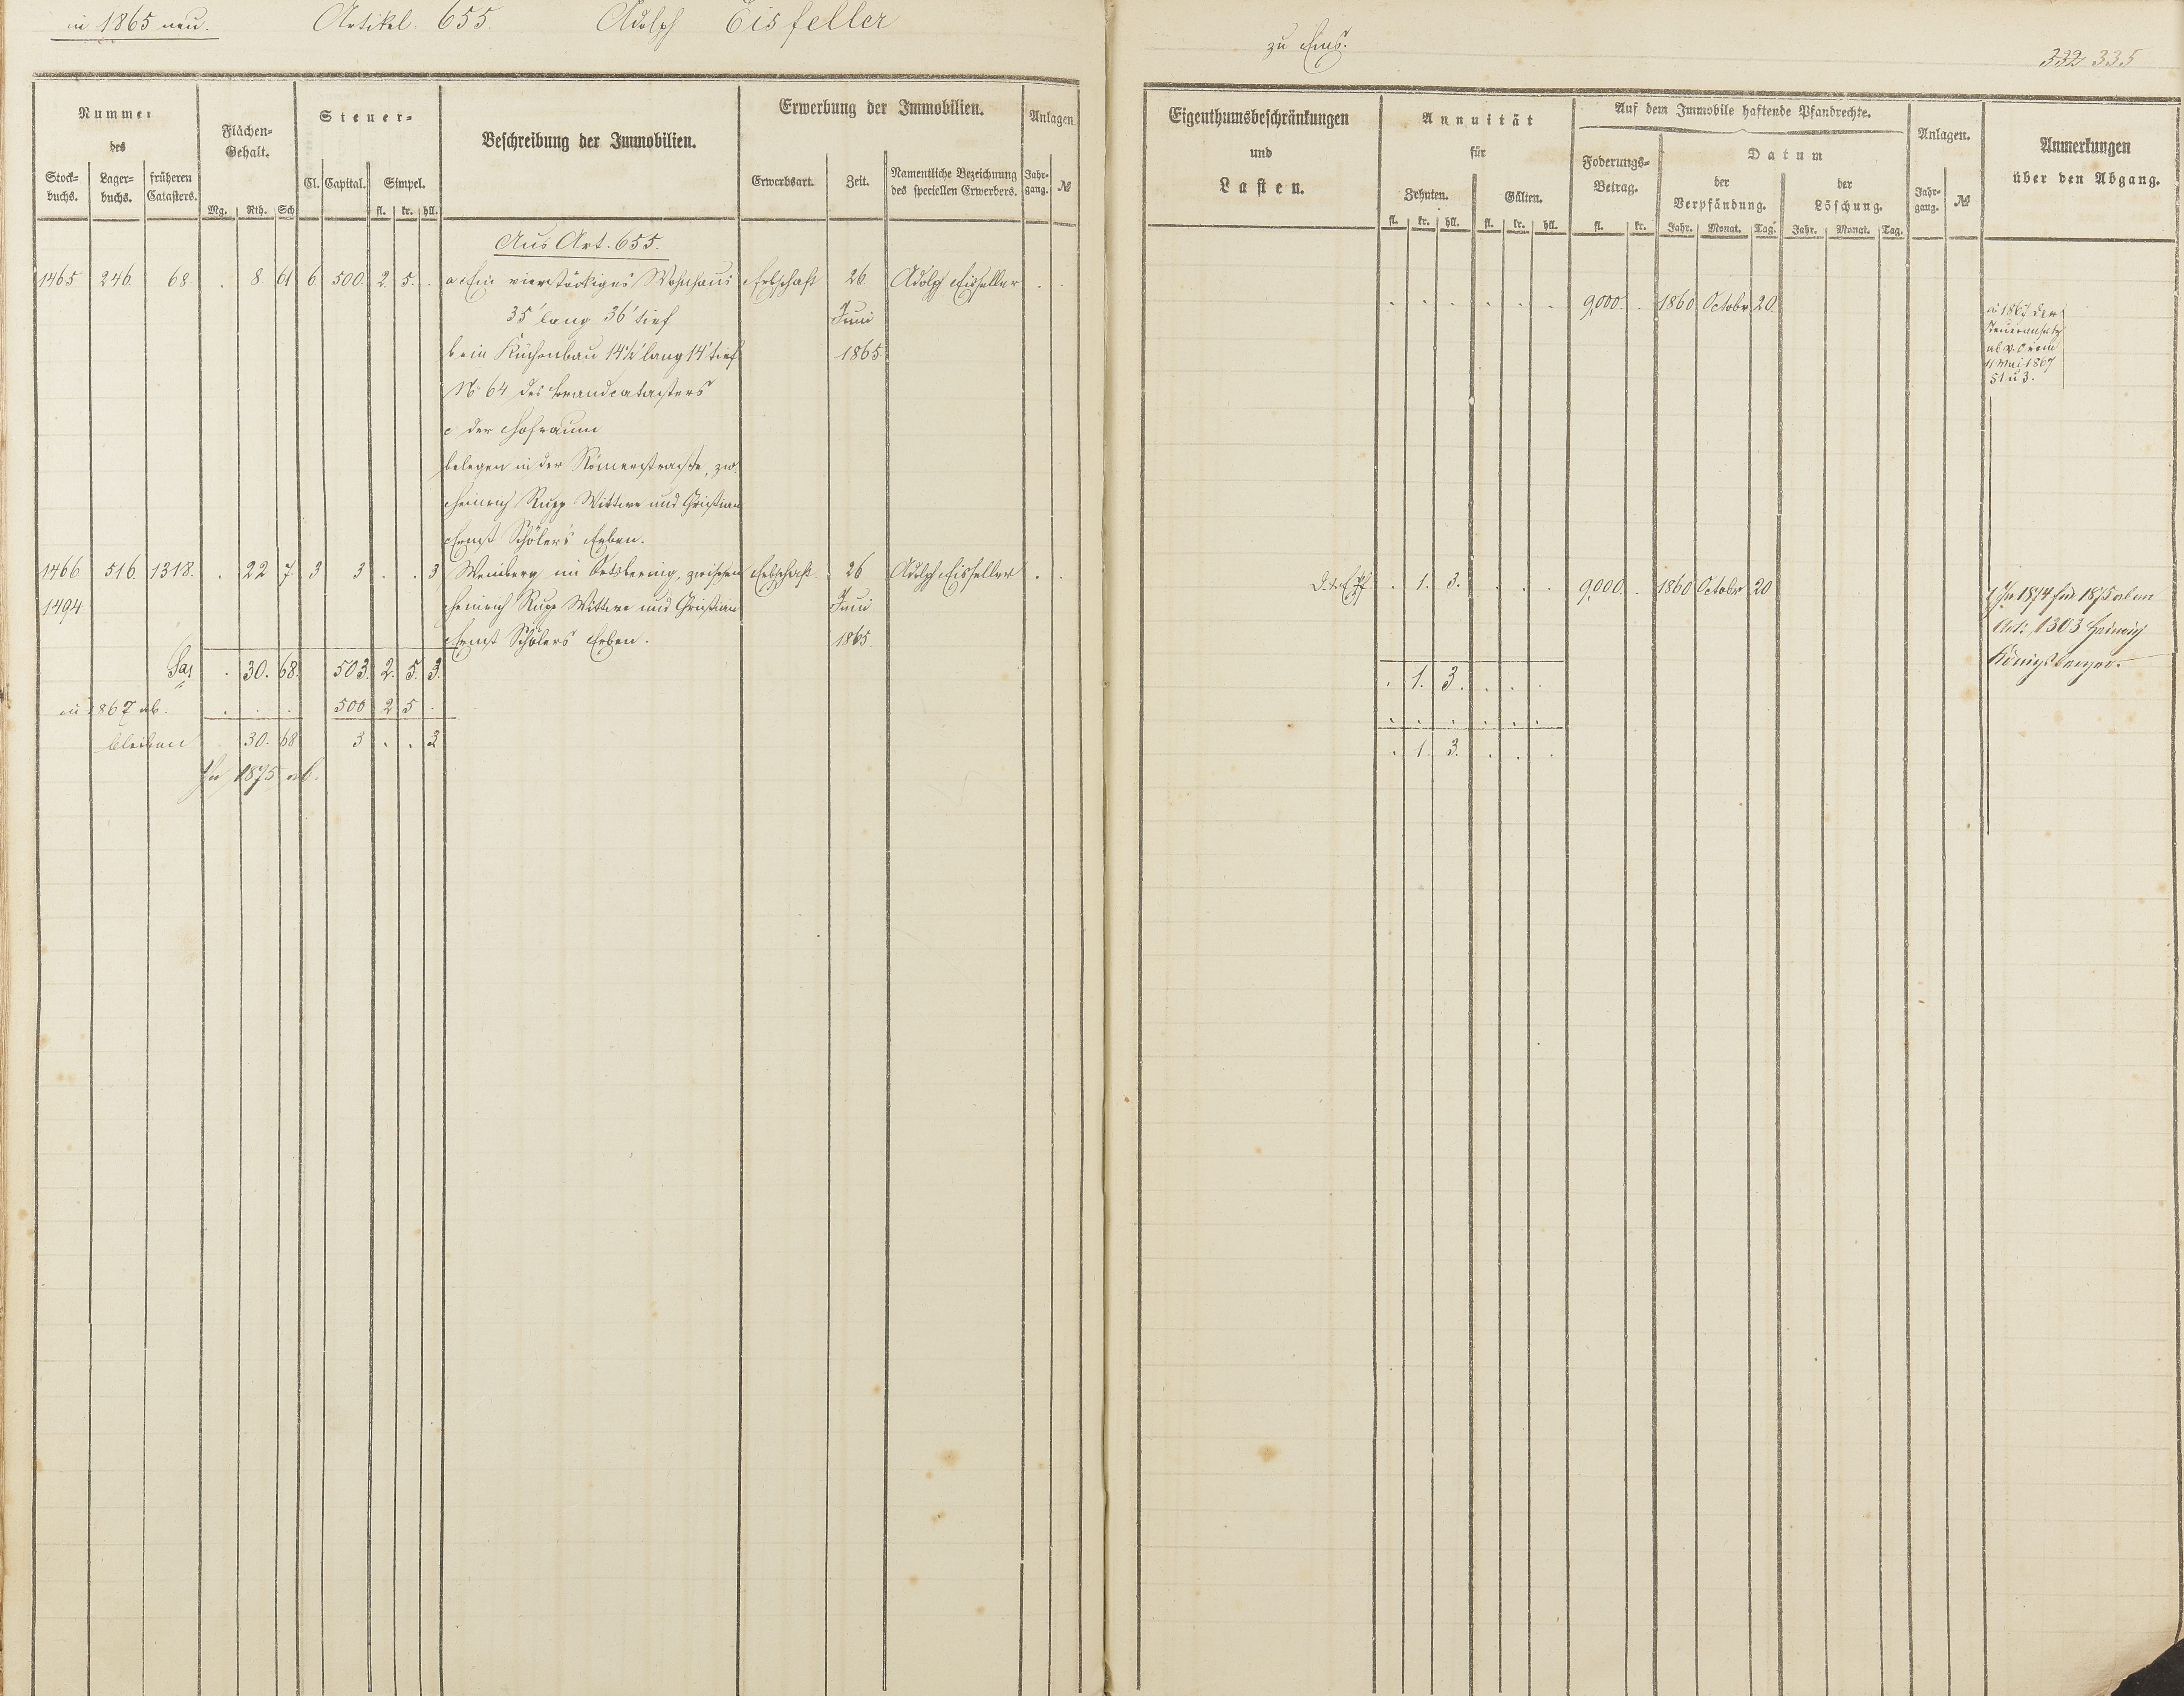 in 1865 neu. Artikel: 655. Adolph Eisfeller
zu Ems.
332 335
Nummer des
Stock=buchs. Lager=buchs. früheren Catasters.
Flächen=Gehalt.
Mg. Rth. Sch
Steuer=
Cl. Capital. Simpel.
fl. kr. hll.
Beschreibung der Immobilien.
Erwerbung der Immobilien.
Erwerbsart. Zeit. Namentliche Bezeichnung des speciellen Erwerbers.
Anlagen.
Jahr=gang. №
Eigenthumsbeschränkungen und Lasten.
Annuität für
Zehnten. Gülten.
fl. kr. hll. fl. kr. hll.
Auf dem Immobile haftende Pfandrechte.
Foderungs=Betrag.
fl. kr.
Datum
der Verpfändung. der Löschung.
Jahr. Monat. Tag. Jahr. Monat. Tag.
Anlagen.
Jahr=gang. №
Anmerkungen über den Abgang.
Aus Art. 655.
1465 246. 68 . 8. 61 6. 500. 2. 5. . a Ein vierstöckiges Wohnhaus Erbschaft 26. Adolph Eisfeller . .
35' lang 36' tief Juni
b ein Küchenbau 14½' lang 14' tief 1865.
№ 64 des Brandcatasters
c der Hofraum
belegen in der Römerstrasse, zw.
Heinrich Rupp Wittwe und Christian
Ernst Schölers Erben.
. . . . . . 9,000. . 1860 Octobr 20.
in 1867 der
Steueransatz
ab
11 Mai 1867
§ 1 u 3.
1466 516. 1318. . 22 7. 3 3 . . 3 Weinberg im Ortsbering, zwischen Erbschaft 26 Adolph Eisfeller . .
1494 Heinrich Rupp Wittwe und Christian Juni
Ernst Schölers Erben. 1865.
. 1. 3. . . . 9,000. . 1860 Octobr 20
In 1874 für 1875 ab an
Art. 1303 Heinrich
Königsberger.
Sa . 30. 68. 503. 2. 5. 3. . 1. 3. . . .
in 1867 ab. . . . 500 2 5 . . . . . . .
bleiben 30. 68 3 . . 3 . 1. 3. . . .
In 1875 ab.